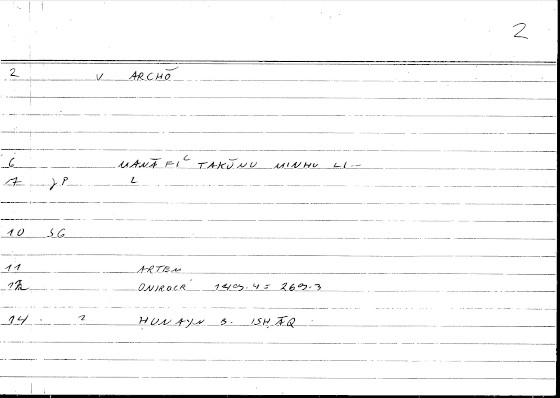 2
2 V ARCHŌ
6 MANĀFIʿ TAKŪNU MINHU LI—
7 JP L
10 SG
11 ARTEM
12 ONIROCR 149.4 = 269.3
14 2 HUNAYN B. ISḤĀQ